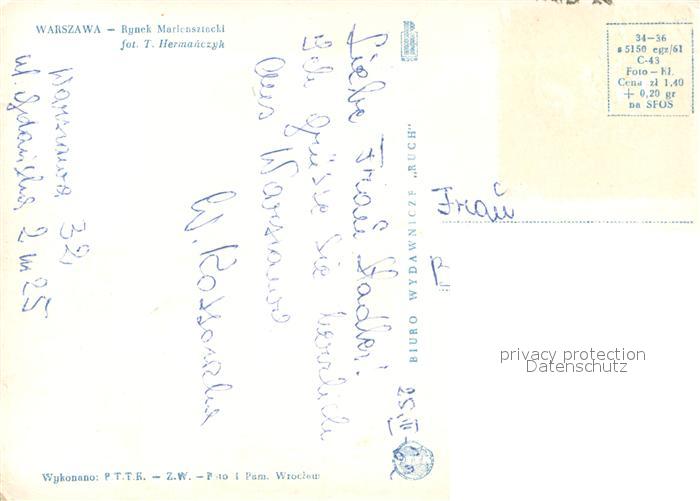 WARSZAWA — Rynek Mariensztacki
fot. T. Hermańczyk
34-36
s 5150 egz/61
C-43
Foto — Kl.
Cena zł 1,40
+ 0,20 gr
na SFOS
Liebe Frau Stadler!
Ich Grüsse Sie herzlich
aus Warszawa
W.
Warszawa 32,
ul. Gdańska 2 m 25
BIURO WYDAWNICZE „RUCH"
Frau
privacy protection
Datenschutz
Wykonano: P.T.T.K. — Z.W. — Foto i Pam. Wrocław